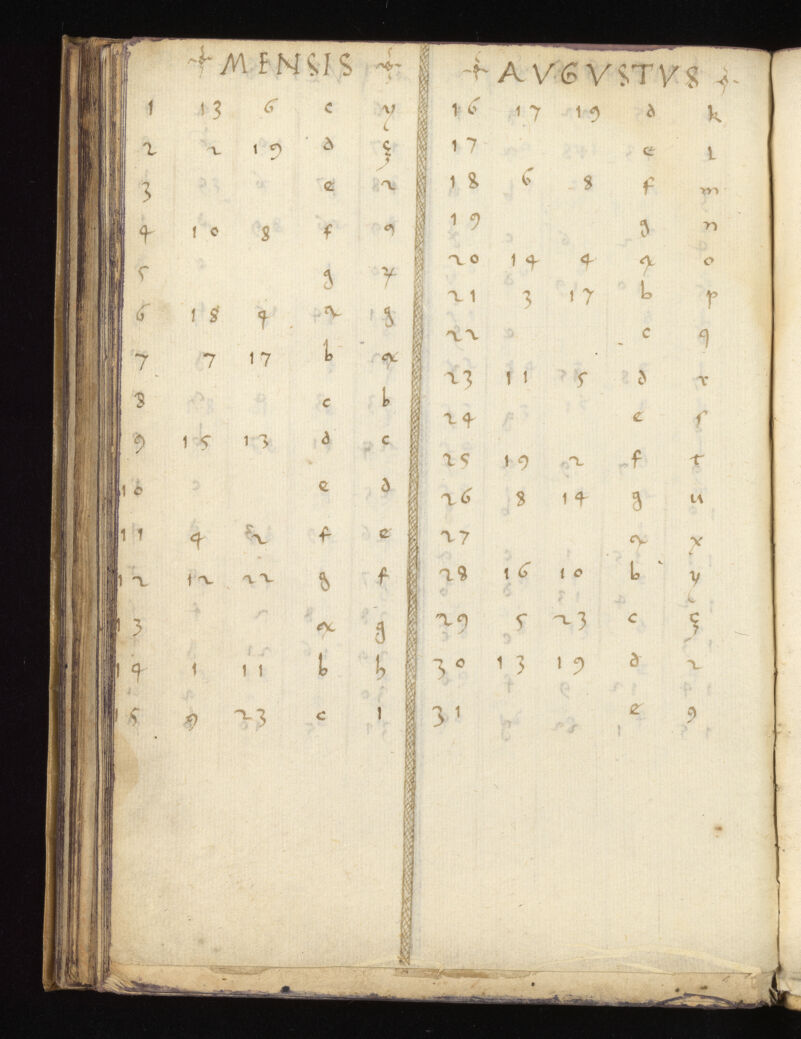 MENSIS
1 13 6 c y
2 2 19 d ç
3 e 2
4 10 8 f 9
5 g
6 18 4 a g
7 7 17 b a
8 c b
9 15 13 d c
10 e d
11 4 2 f e
12 12 22 g f
13 a g
14 1 11 b h
15 9 23 c 1
AVGVSTVS
16 17 19 d k
17 e l
18 6 8 f m
19 g n
20 14 4 a o
21 3 17 b p
22 c q
23 11 5 d r
24 e s
25 19 2 f t
26 8 14 g u
27 a x
28 16 10 b y
29 5 23 c ç
30 13 19 d 2
31 e 9